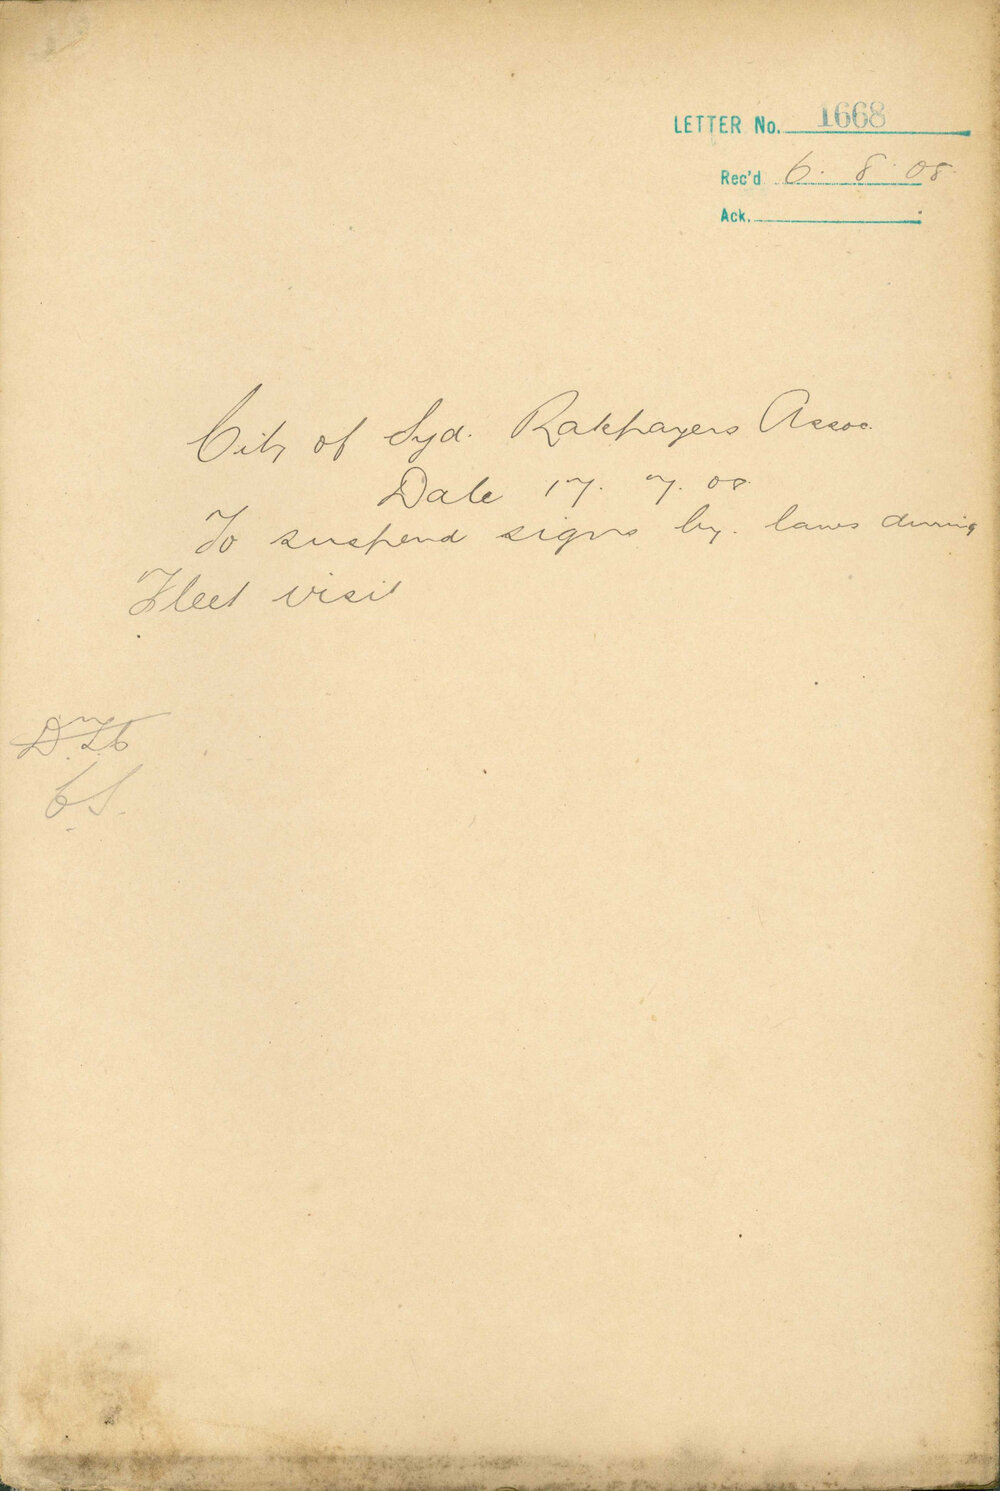 LETTER No. 1668
Rec'd 6. 8. 08.
Ack.
City of Syd. Ratepayers Assoc.
Date 17. 7. 08.
To suspend signs by. laws during
Fleet visit
C.S.